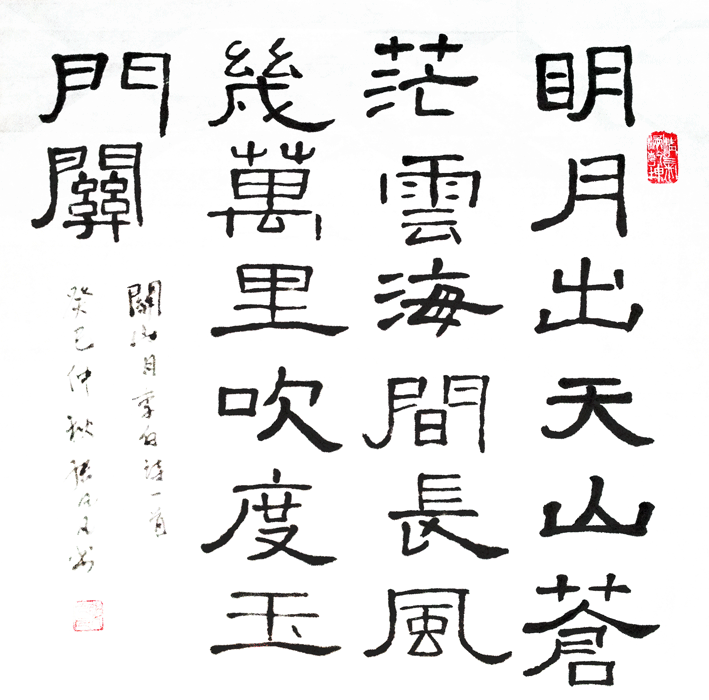 明月出天山蒼
茫雲海間長風
幾萬里吹度玉
門關
關山月李白詩一首
癸巳仲秋